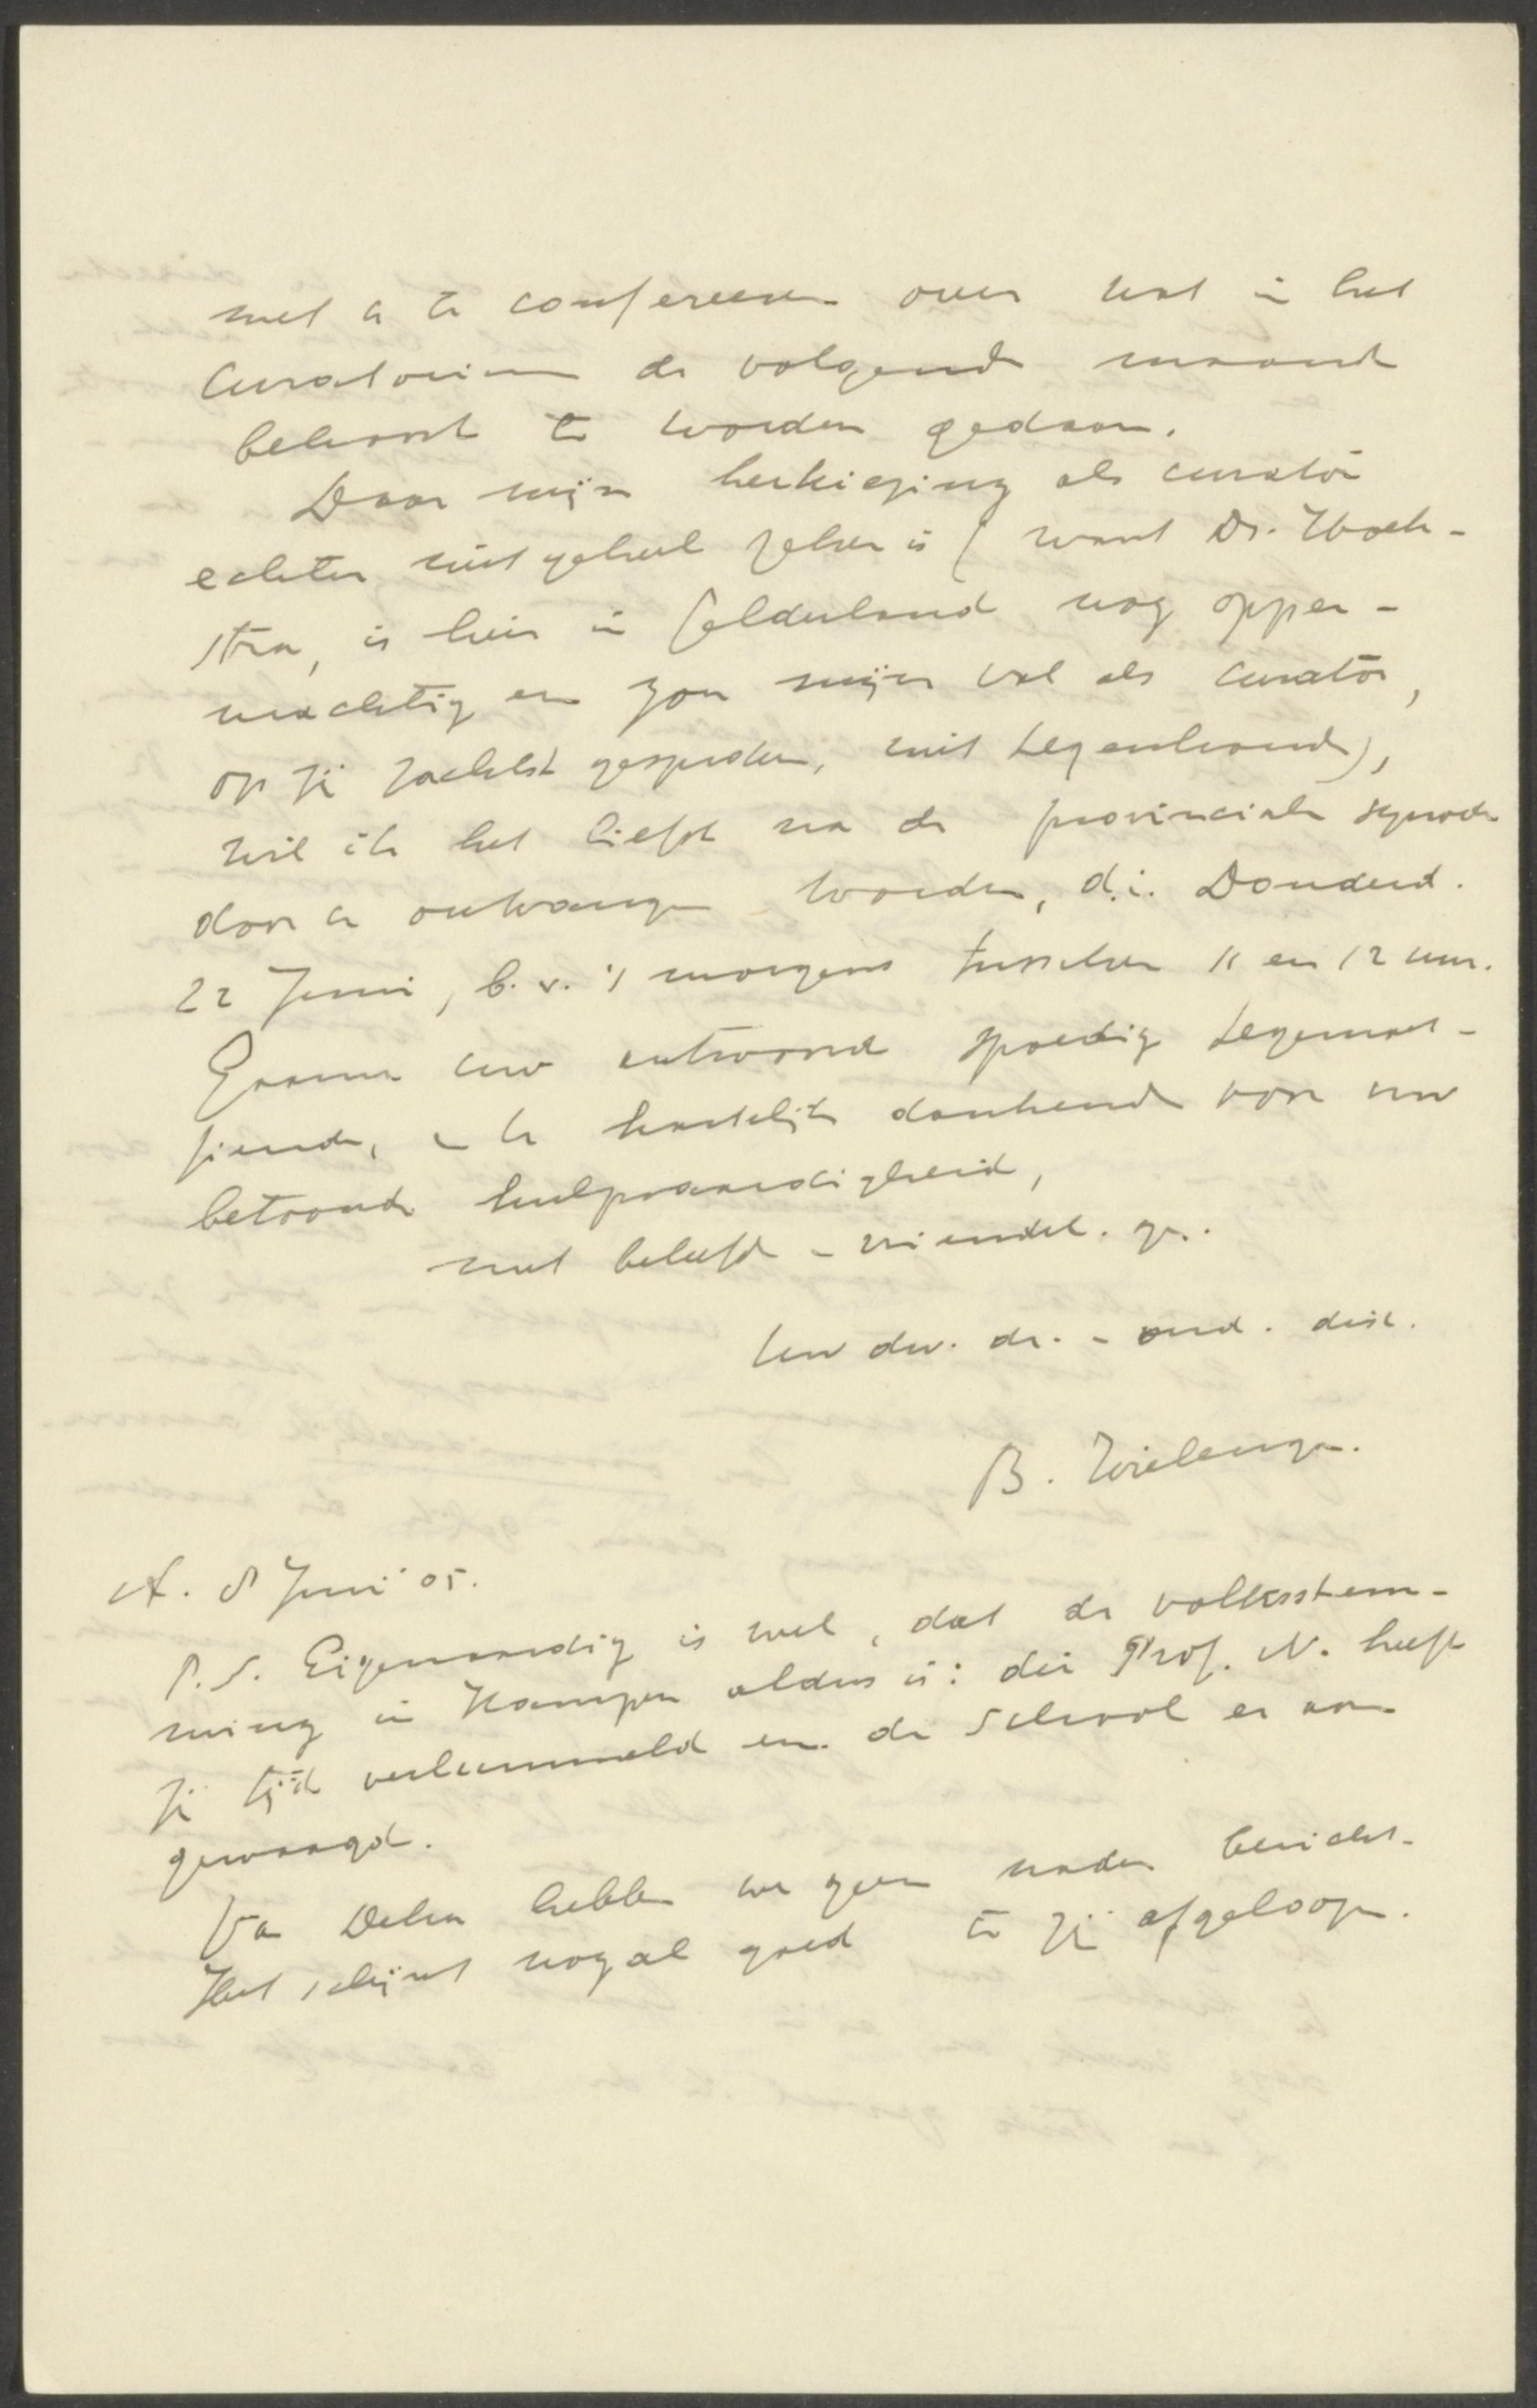 met u te confereeren over wat in het
Curatorium de volgende maand
behoort te worden gedaan.
Daar mijn herkiezing als curator
echter niet geheel zeker is (want Dr. Hoek-
stra, is hier in Gelderland nog opper-
machtig en zou mijn val als curator,
op zij zachtst gesproken, niet tegenhoud),
wil ik het liefst na de provinciale synode
door u ontvangen worden, d.i. Donderd.
22 Juni, b.v. 's morgens tusschen 11 en 12 uur.
Gaarne uw antwoord spoedig tegemoet-
ziende, en U hartelijk dankend voor uw
betoonde hulpvaardigheid,
met beleefde en vriendel. gr.
Uw dw. dr. en oud. disc.
B. Wielenga.
A. 8 Juni '05.
P.S. Eigenaardig is wel, dat de volksstem-
ming in Kampen aldus is: die Prof. N. heeft
zij tijd verlummeld en de School er aan
gewaagd.
Va Delen hebben we geen nader bericht.
Het schijnt nogal goed te zij afgeloopen.